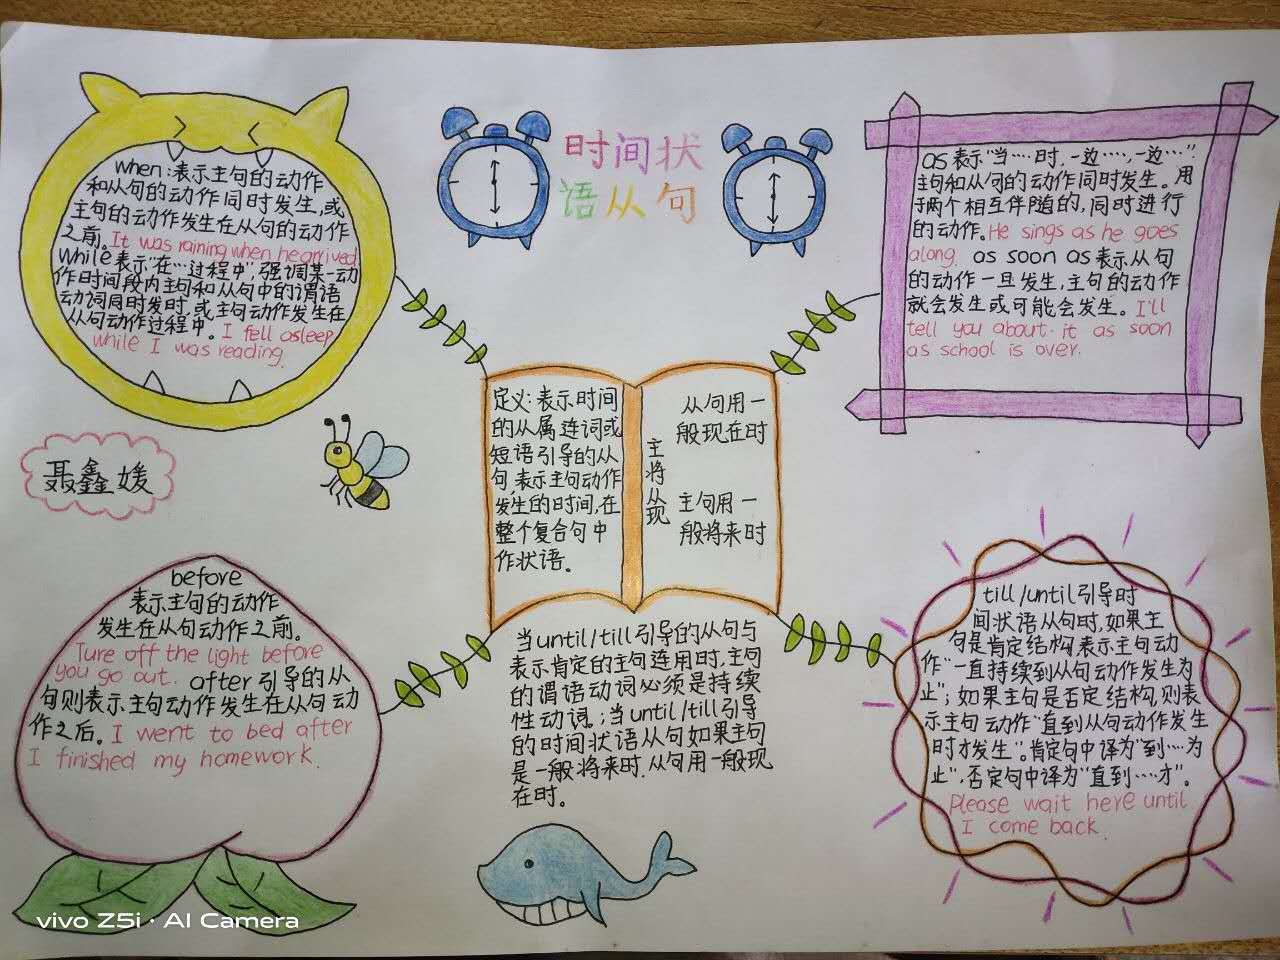 时间状
语从句
when:表示主句的动作
和从句的动作同时发生,或
主句的动作发生在从句的动作
之前。It was raining when he arrived
while表示“在…过程中”,强调某一动
作时间段内主句和从句中的谓语
动词同时发时,或主句动作发生在
从句动作过程中。I fell asleep
while I was reading.
as表示“当…时,一边…,一边…”
主句和从句的动作同时发生。用
于两个相互伴随的,同时进行
的动作。He sings as he goes
along. as soon as表示从句
的动作一旦发生,主句的动作
就会发生或可能会发生。I'll
tell you about. it as soon
as school is over.
定义:表示时间
的从属连词或
短语引导的从
句,表示主句动作
发生的时间,在
整个复合句中
作状语。
主将从现
从句用一
般现在时
主句用一
般将来时
聂鑫媛
before
表示主句的动作
发生在从句动作之前。
Ture off the light before
you go out. after引导的从
句则表示主句动作发生在从句动
作之后。I went to bed after
I finished my homework.
当until/till引导的从句与
表示肯定的主句连用时,主句
的谓语动词必须是持续
性动词;当until/till引导
的时间状语从句如果主句
是一般将来时.从句用一般现
在时。
till/until引导时
间状语从句时,如果主
句是肯定结构,表示主句动
作“一直持续到从句动作发生为
止”;如果主句是否定结构,则表
示主句动作“直到从句动作发生
时才发生”。肯定句中译为“到…为
止”,否定句中译为“直到…才”。
please wait here until
I come back.
vivo Z5i · AI Camera